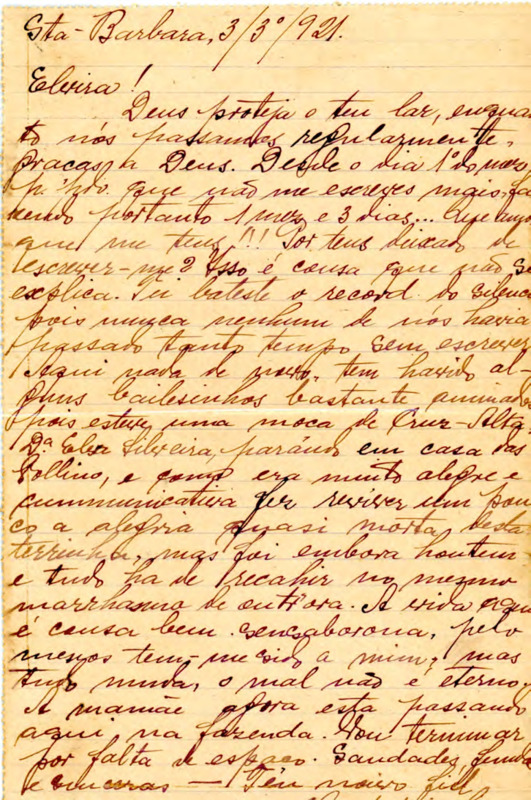 Sta- Barbara, 3/3º/921.
Elvira!
Deus proteja o teu lar, enquan
to nós passamos regularmente,
graças a Deus. Desde o dia 1º do mez
p. pdo. que não me escreves mais, fa
zendo portanto 1 mez e 3 dias... Que
que me tens!!! Por teus deixado de
escrever-me? Isso é cousa que não se
explica. Tu bateste o record do silencio
pois nunca nenhum de nós havia
passado tanto tempo sem escrever.
Aqui nada de novo, tem havido al-
guns bailesinhos bastante animados
pois esteve uma moça de Cruz-Alta.
Dª Elva Silveira, parando em casa das
e como era muito alegre e
communicativa fez reviver um pou
co a alegria quasi morta desta
terrinha, mas foi embora hontem
e tudo ha de recahir no mesmo
marrhasmo de outr'ora. A vida aqui
é cousa bem sensaborona, pelo
menos tem-me sido a mim; mas
tudo muda, o mal não é eterno.
A mamãe agora está passando
aqui na fazenda. Vou terminar
por falta de espaço. Saudades,
e sinceras — Teu noivo